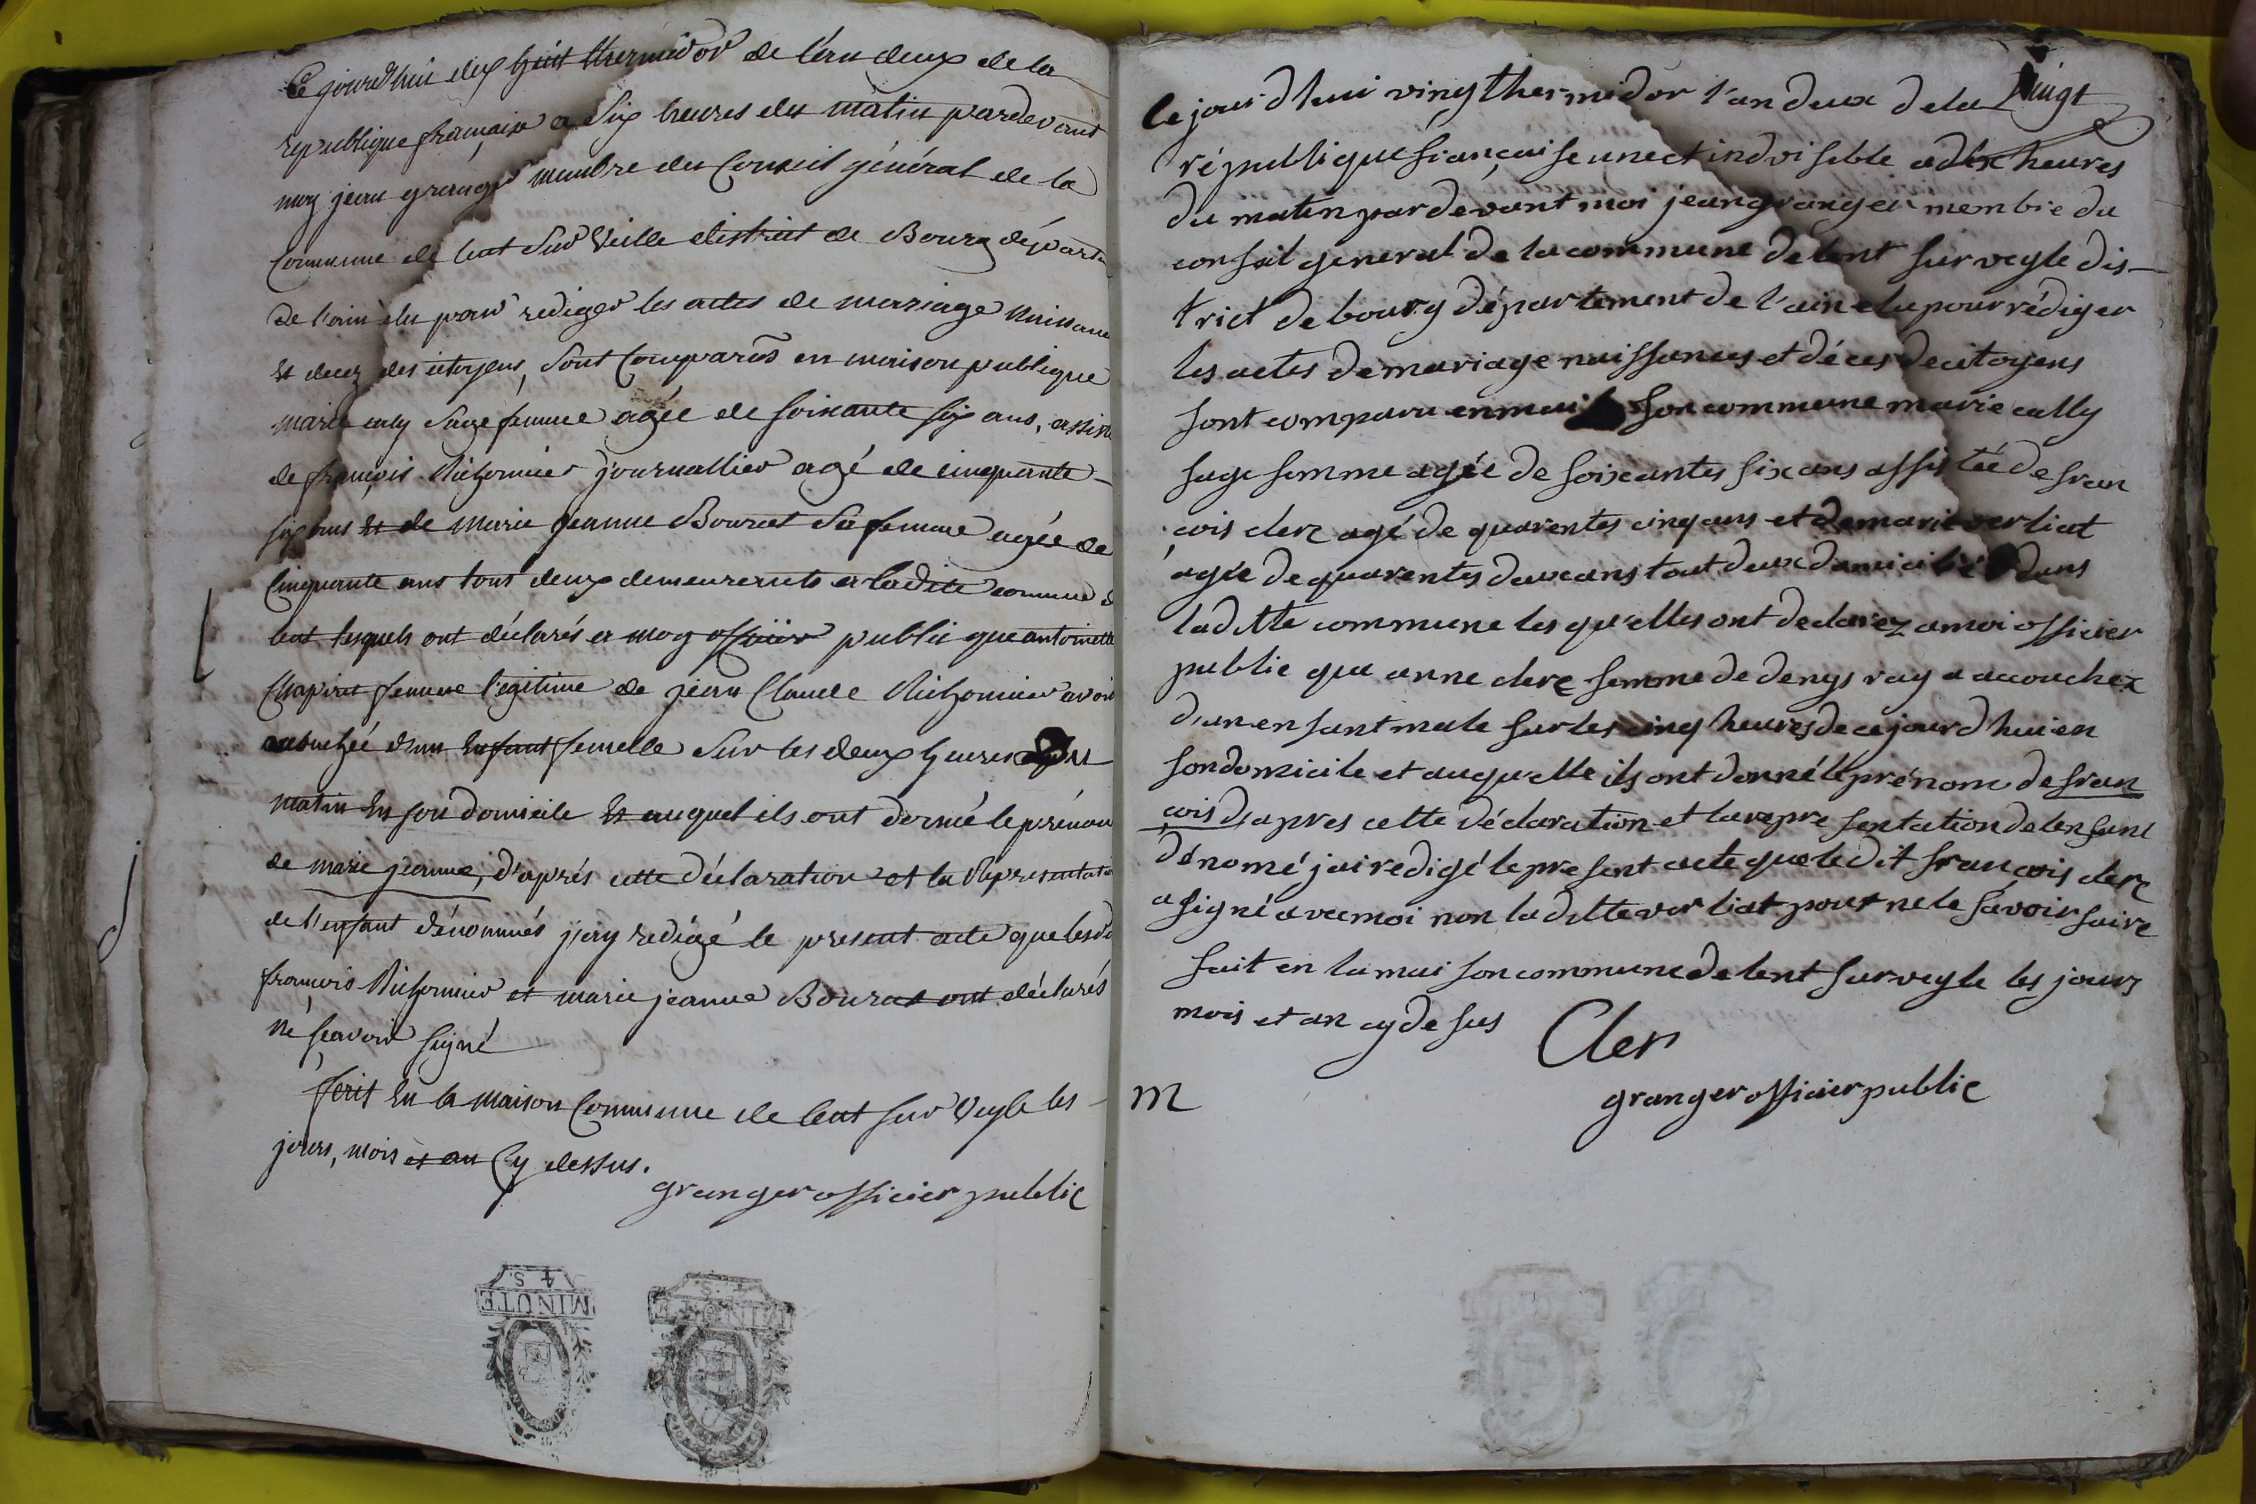 Ce jourd'hui dix huit thermidor de l'an deux de la
republique française a Six heures du matin pardevant
moy jean granger membre du Conseil général de la
Commune de lent Sur Veille district de Bourg départem
de l'ain élu pour rediger les actes de mariage Naissance
Et decez des citoyens, Sont Comparus en maison publique
marie cally Sage femme agée de soixante six ans, assisté
de françois Richonnier journallier agé de cinquante
six ans Et de Marie jeanne Bourcet Sa femme agée de
Cinquante ans tous deux demeurents a ladite commune de
lent lesquels ont déclarés a moy officier public que antoinette
Chapirat femme légitime de jean Claude Richonnier avoit
acouchée d'un Enfant femelle Sur les deux heures du
matin En son domicile Et auquel ils ont donné le prénom
de marie jeanne, d'aprés cette déclaration et la Représentation
de l'enfant dénommés j'ay redigé le present acte que lesd
françois Richonnier et marie jeanne Bourcet ont déclarés
ne sçavoir signé
fait En la maison Commune de lent sur Veyle les
jours, mois et an Cy dessus.
granger officier public
MINUTE
4 S.
MINUTE
Vingt
Ce jour d'hui vingt thermidor l'an deux de la
république française une et indvisible a dix heures
du maten par devant moi jean granger membre du
conseil general de la commune de lent sur veyle dis-
trict de bourg département de l'ain elu pour rédiger
les actes de mariage naissances et déces de citoyens
sont comparu en mai son commune marie cally
sage femme agée de soixantes six ans assistée de fran
cois clerc agé de quarentes cinq ans et de marie verliat
agée de quarentes deux ans tout deux domicilié dans
laditte commune les qu'elles ont declarez a moi officier
public que anne clerc femme de denys ray a accouchez
d'un enfant male sur les cinq heures de ce jourd huien
son domicile et auqu'elle ils ont donné le prénom de fran
çois d'apres cette déclaration et la repre sentation de lenfant
dénomé jai redigé le present acte que le dit françois clerc
a signé avec moi non laditte verliat pour ne le savoir faire
fait en la mai son commune de lent sur veyle les jours
mois et an cy de sus
Cler
m
granger officier public